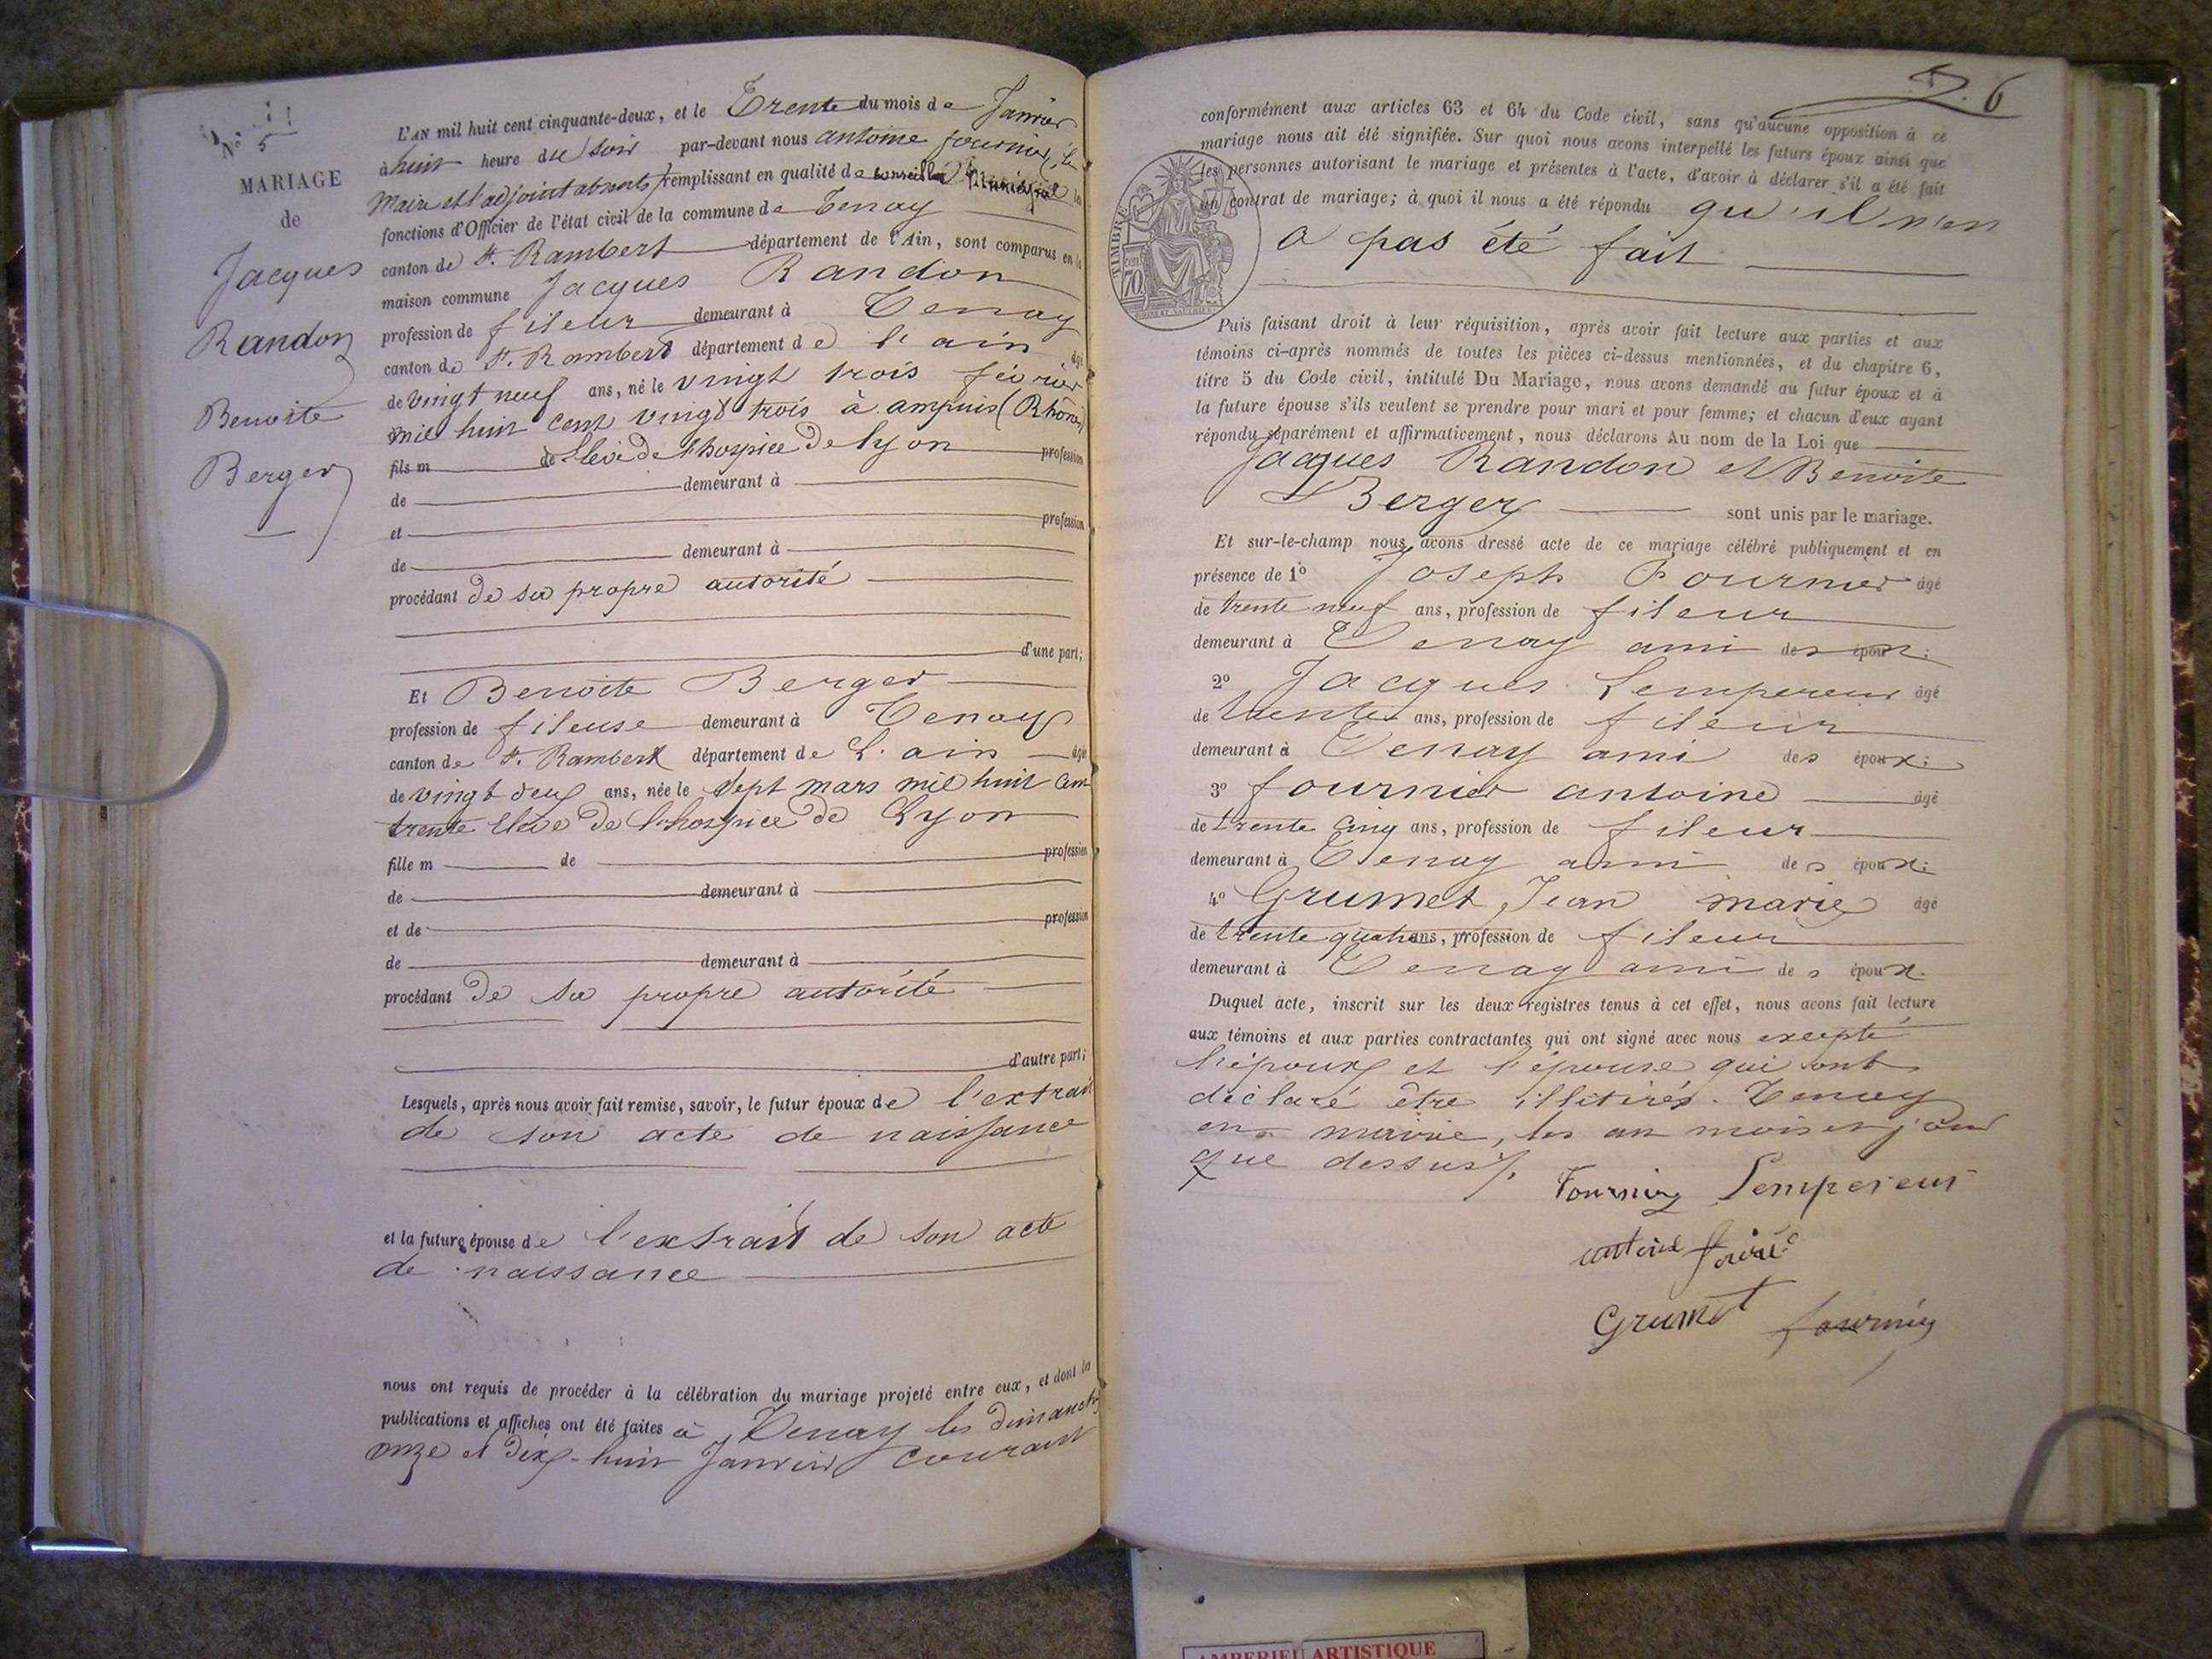 Nº 5
MARIAGE
de
Jacques
Randon
Benoite
Berger
L'AN mil huit cent cinquante-deux, et le Trente du mois de Janvier
à huit heure du soir par-devant nous antoine fournier, le
Maire et l'adjoint absents, remplissant en qualité de conseiller Municipal les
fonctions d'Officier de l'état civil de la commune de Tenay
canton de St. Rambert département de l'Ain, sont comparus en la
maison commune Jacques Randon
profession de fileur demeurant à Tenay
canton de St. Rambert département de l'ain âgé
de vingt neuf ans, né le vingt trois février
mil huit cent vingt trois à ampuis (Rhône)
fils m de Elève de l'hospice de lyon profession
de demeurant à
et profession
de demeurant à
procédant de sa propre autorité
d'une part;
Et Benoite Berger
profession de fileuse demeurant à Tenay
canton de St. Rambert département de L'ain âgé
de vingt deux ans, née le sept mars mil huit cent
trente Elève de l'hospice de Lyon
fille m de profession
de demeurant à
et de profession
de demeurant à
procédant de sa propre autorité
d'autre part;
Lesquels, après nous avoir fait remise, savoir, le futur époux de l'extrait
de son acte de naissance
et la future épouse de l'extrait de son acte
de naissance
nous ont requis de procéder à la célébration du mariage projeté entre eux, et dont les
publications et affiches ont été faites à Tenay les dimanches
onze et dix-huit Janvier courant
6
conformément aux articles 63 et 64 du Code civil, sans qu'aucune opposition à ce
mariage nous ait été signifiée. Sur quoi nous avons interpellé les futurs époux ainsi que
les personnes autorisant le mariage et présentes à l'acte, d'avoir à déclarer s'il a été fait
un contrat de mariage; à quoi il nous a été répondu qu'il n'en
a pas été fait
TIMBRE
70 cen
Puis faisant droit à leur réquisition, après avoir fait lecture aux parties et aux
témoins ci-après nommés de toutes les pièces ci-dessus mentionnées, et du chapitre 6,
titre 5 du Code civil, intitulé Du Mariage, nous avons demandé au futur époux et à
la future épouse s'ils veulent se prendre pour mari et pour femme; et chacun d'eux ayant
répondu séparément et affirmativement, nous déclarons Au nom de la Loi que
Jacques Randon et Benoite
Berger sont unis par le mariage.
Et sur-le-champ nous avons dressé acte de ce mariage célébré publiquement et en
présence de 1º Joseph Fournier âgé
de trente neuf ans, profession de fileur
demeurant à Tenay ami des époux;
2º Jacques Lempereur âgé
de trente ans, profession de fileur
demeurant à Tenay ami des époux;
3º fournier antoine âgé
de trente cinq ans, profession de fileur
demeurant à Tenay ami des époux;
4º Grumet Jean marie âgé
de trente quatre ans, profession de fileur
demeurant à Tenay ami des époux.
Duquel acte, inscrit sur les deux registres tenus à cet effet, nous avons fait lecture
aux témoins et aux parties contractantes qui ont signé avec nous excepté
l'époux et l'épouse qui ont
déclaré être illitirés. Tenay
en mairie, les an mois et jour
que dessus.
Fournier Lempereur
antoine
Grumet fournier
AMBERIEU ARTISTIQUE